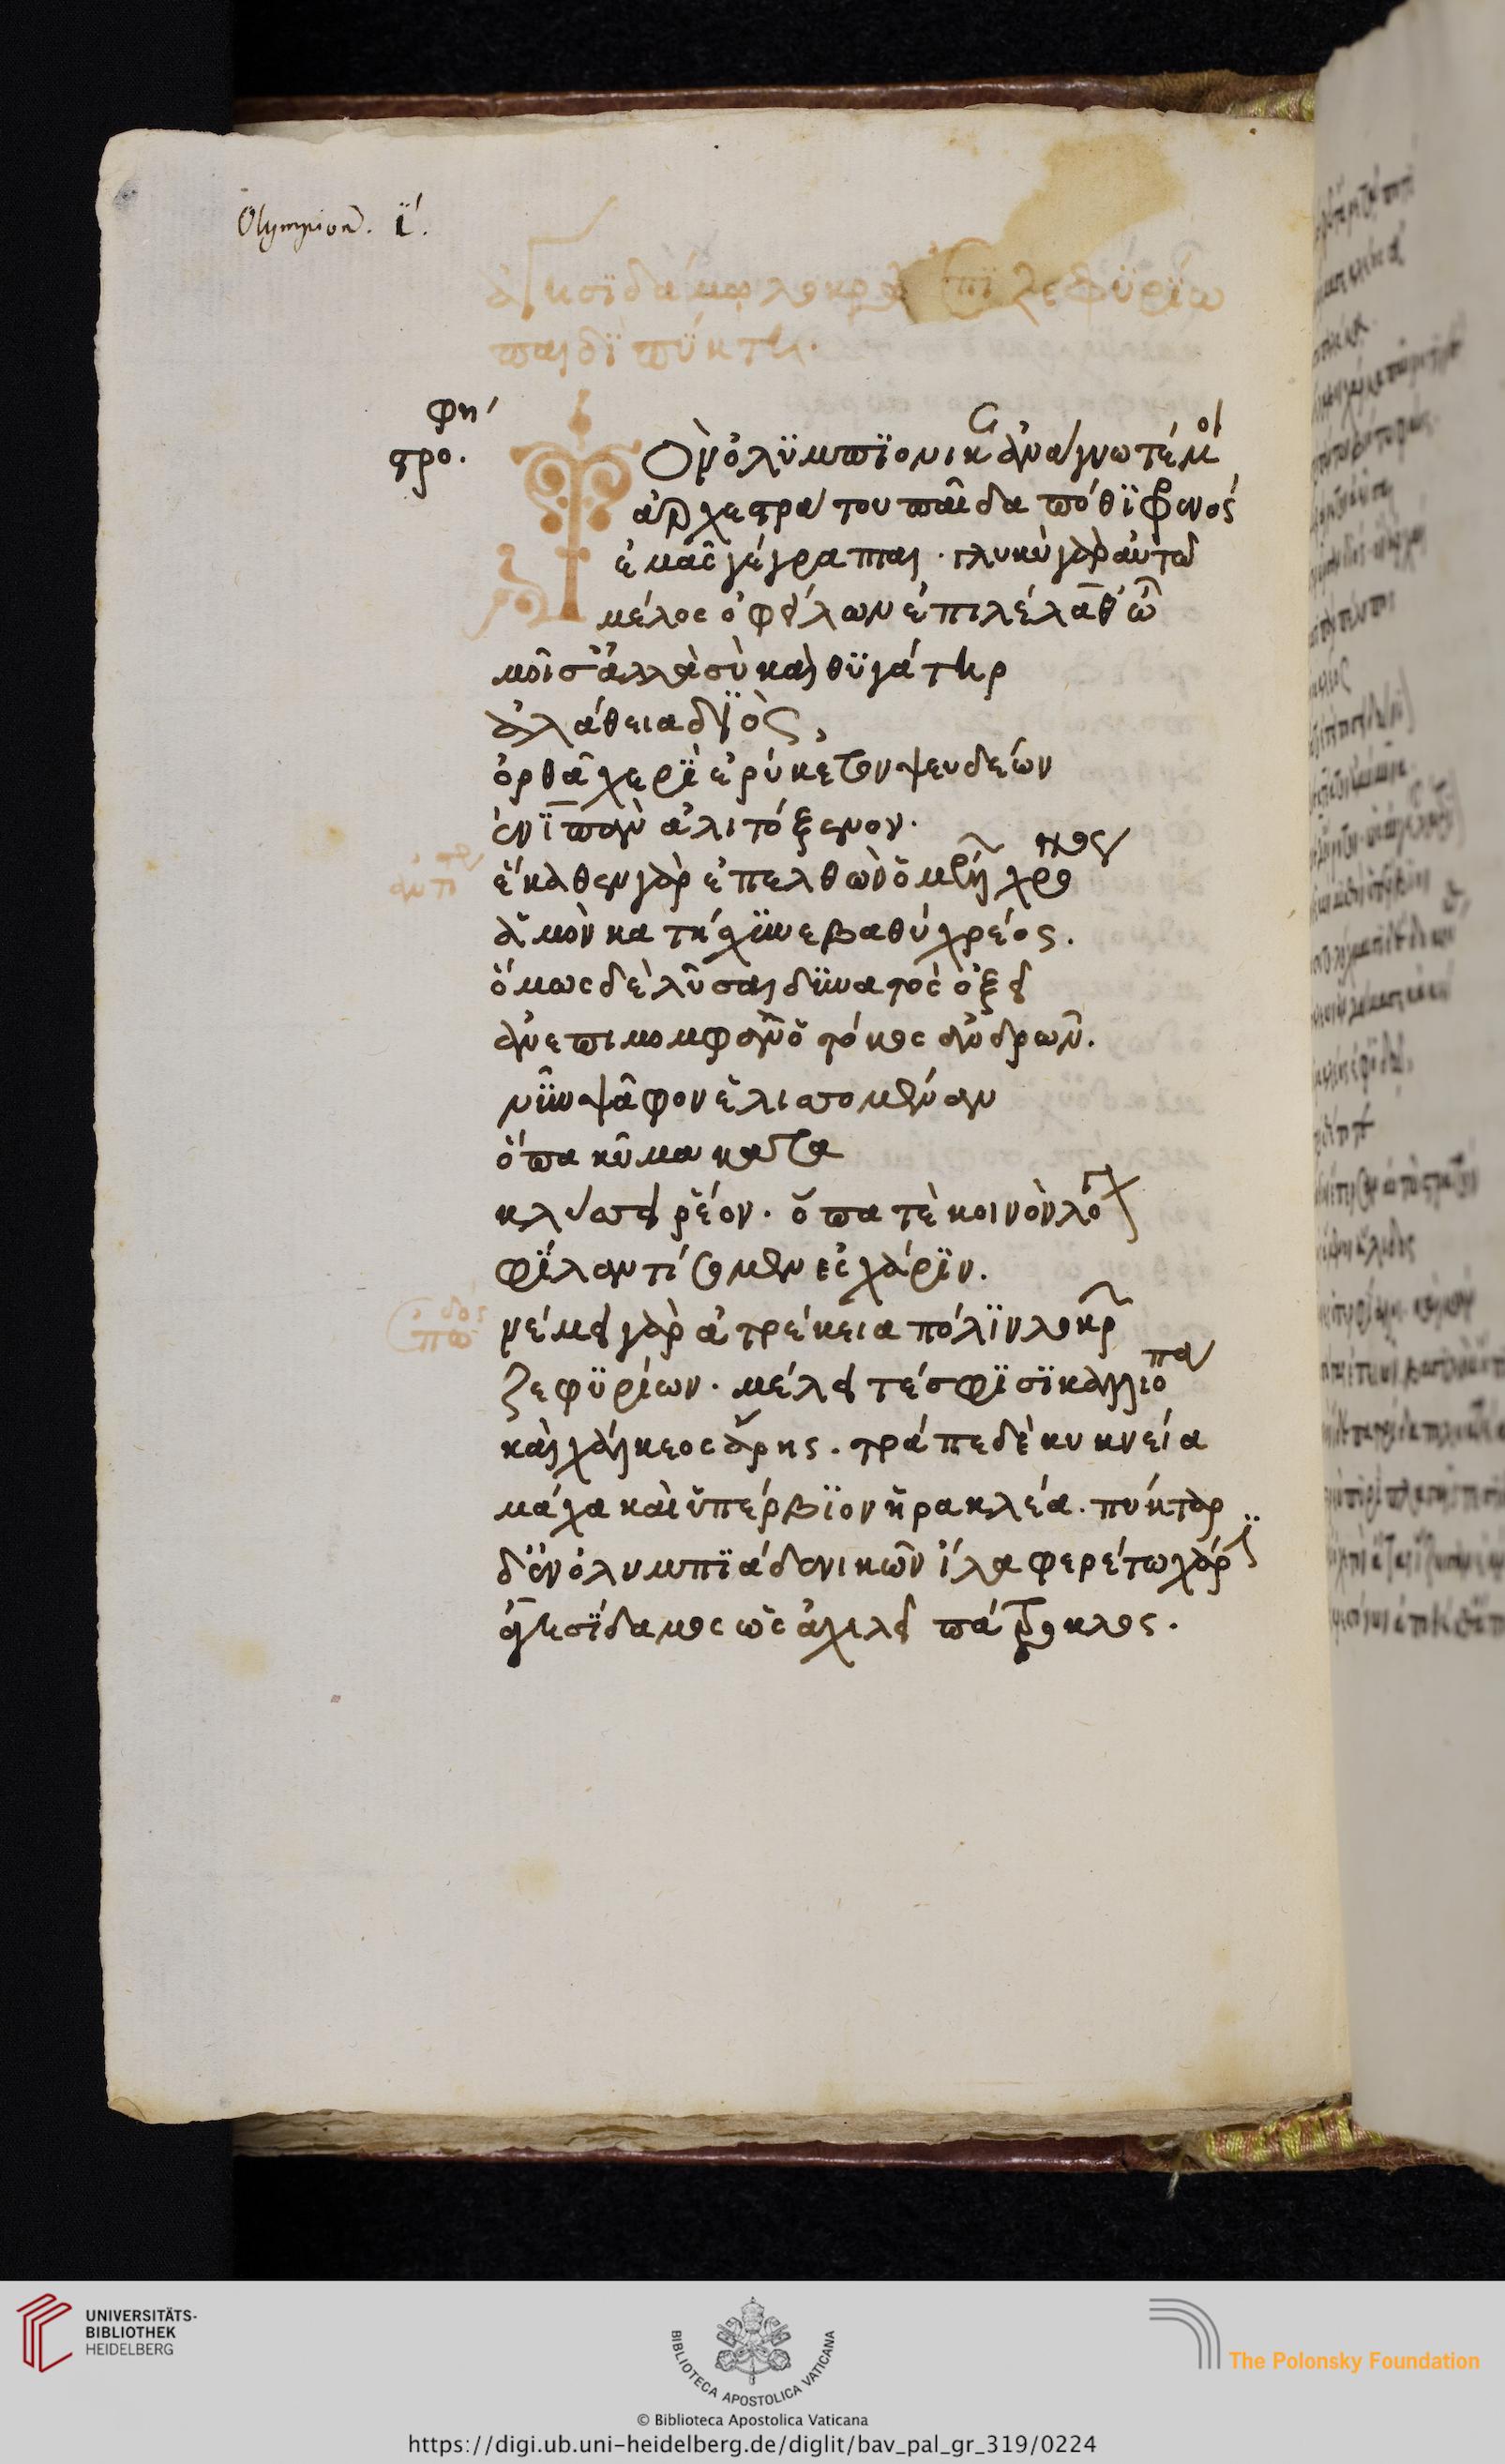 Olympion. ϊ.
ἁγησϊδάμῳ λοκρῷ ἐπϊζεφϋρΐω
παιδῒ πΰκτη.
στρο.
Τὸν ὀλϋμπϊονίκαν ἀνάγνωτέ μοι
ἀρχεστράτου παῖδα πόθϊ φρενὸς
ἐμᾶς γέγραπται. γλυκὺ γὰρ αὐτῶ
μέλος ὀφείλων ἐπιλέλαθ' ὦ
μοῖσ' ἀλλὰ σὺ καὶ θϋγάτηρ
ἀλάθεια διὸς,
ὀρθᾶ χερῒ ἐρύκετον ψευδέων
ἐνϊπὰν ἀλιτόξενον.
ἕκαθεν γὰρ ἐπελθὼν ὁ μέλλων χρόνος
ἀμὸν καταίσχϋνε βαθὺ χρέος.
ὅμως δὲ λῦσαι δϋνατὸς ὀξεῖ
αν επιμομφὰν ὁ τόκος ἀνδρῶν.
νῦν ψᾶφον ἑλισσομέναν
ὅπα κῦμα κατα
κλύσσει ῥέον. ὅπα τὲ κοινὸν λόγον
φΐλαν τίσομεν ἐς χάρϊν.
νέμει γὰρ ἀτρέκεια πόλϊν λοκρῶν
ζεφϋρίων. μέλει τέ σφϊσϊ καλλιόπα
καὶ χάλκεος ἄρης. τράπε δὲ κυκνεία
μάχα καὶ ὑπέρβϊον ἡρακλέα. πύκτας
δ' ἐν ὀλυμπϊάδι νικῶν ἴλα φερέτω χάρϊν
ἁγησΐδαμος ὡς ἀχιλεῖ πάτροκλος.
UNIVERSITÄTS-
BIBLIOTHEK
HEIDELBERG
BIBLIOTECA APOSTOLICA VATICANA
The Polonsky Foundation
© Biblioteca Apostolica Vaticana
https://digi.ub.uni-heidelberg.de/diglit/bav_pal_gr_319/0224